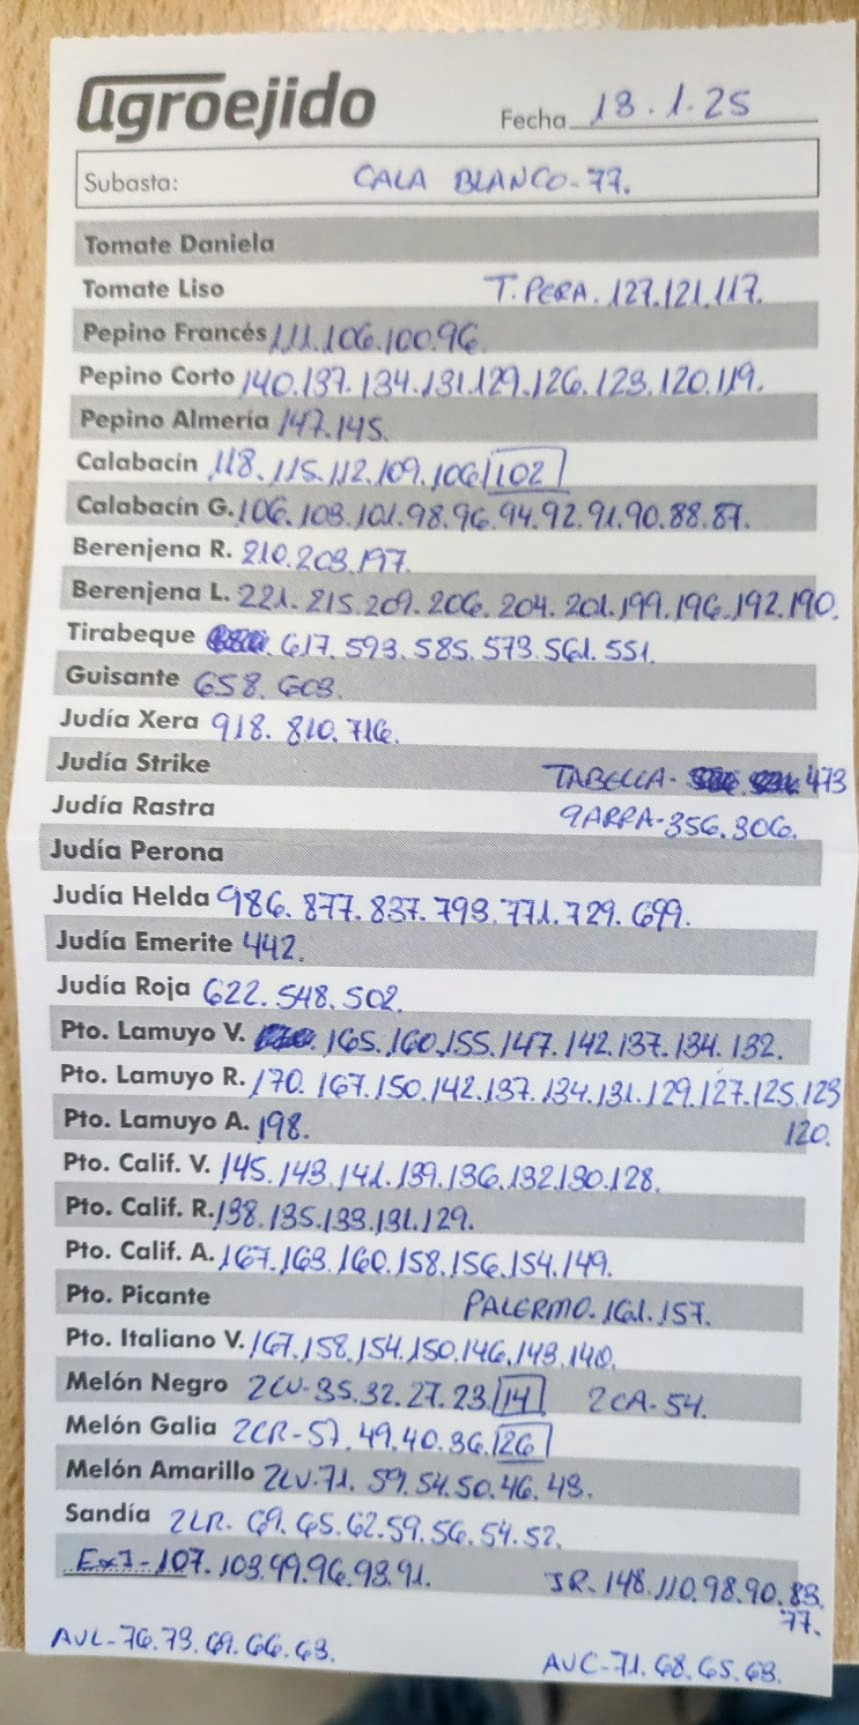 agroejido
Fecha 18.1.25
Subasta: CALA BLANCO-77.
Tomate Daniela
Tomate Liso T. PERA. 127.121.117.
Pepino Francés 111.106.100.96.
Pepino Corto 140.137.134.131.129.126.123.120.119.
Pepino Almería 147.145.
Calabacín 118.115.112.109.106.102
Calabacín G. 106.103.101.98.96.94.92.91.90.88.87.
Berenjena R. 210.203.197.
Berenjena L. 221.215.209.206.204.201.199.196.192.190.
Tirabeque 617.593.585.573.561.551.
Guisante 658.603.
Judía Xera 918.810.716.
Judía Strike TABELLA- 473
Judía Rastra GARRA-356.306.
Judía Perona
Judía Helda 986.877.837.793.771.729.699.
Judía Emerite 442.
Judía Roja 622.548.502.
Pto. Lamuyo V. 165.160.155.147.142.137.134.132.
Pto. Lamuyo R. 170.167.150.142.137.134.131.129.127.125.123
Pto. Lamuyo A. 198. 120.
Pto. Calif. V. 145.143.141.139.136.132.130.128.
Pto. Calif. R. 138.135.133.131.129.
Pto. Calif. A. 167.163.160.158.156.154.149.
Pto. Picante PALERMO.161.157.
Pto. Italiano V. 167.158.154.150.146.143.140.
Melón Negro 2CV-35.32.27.23.14 2CA-54.
Melón Galia 2CR-57.49.40.36.26
Melón Amarillo 2LV.71.59.54.50.46.43.
Sandía 2LR-69.65.62.59.56.54.52.
107.103.99.96.93.91. JR-148.110.98.90.83.
77.
AVL-76.73.69.66.63.
AVC-71.68.65.63.